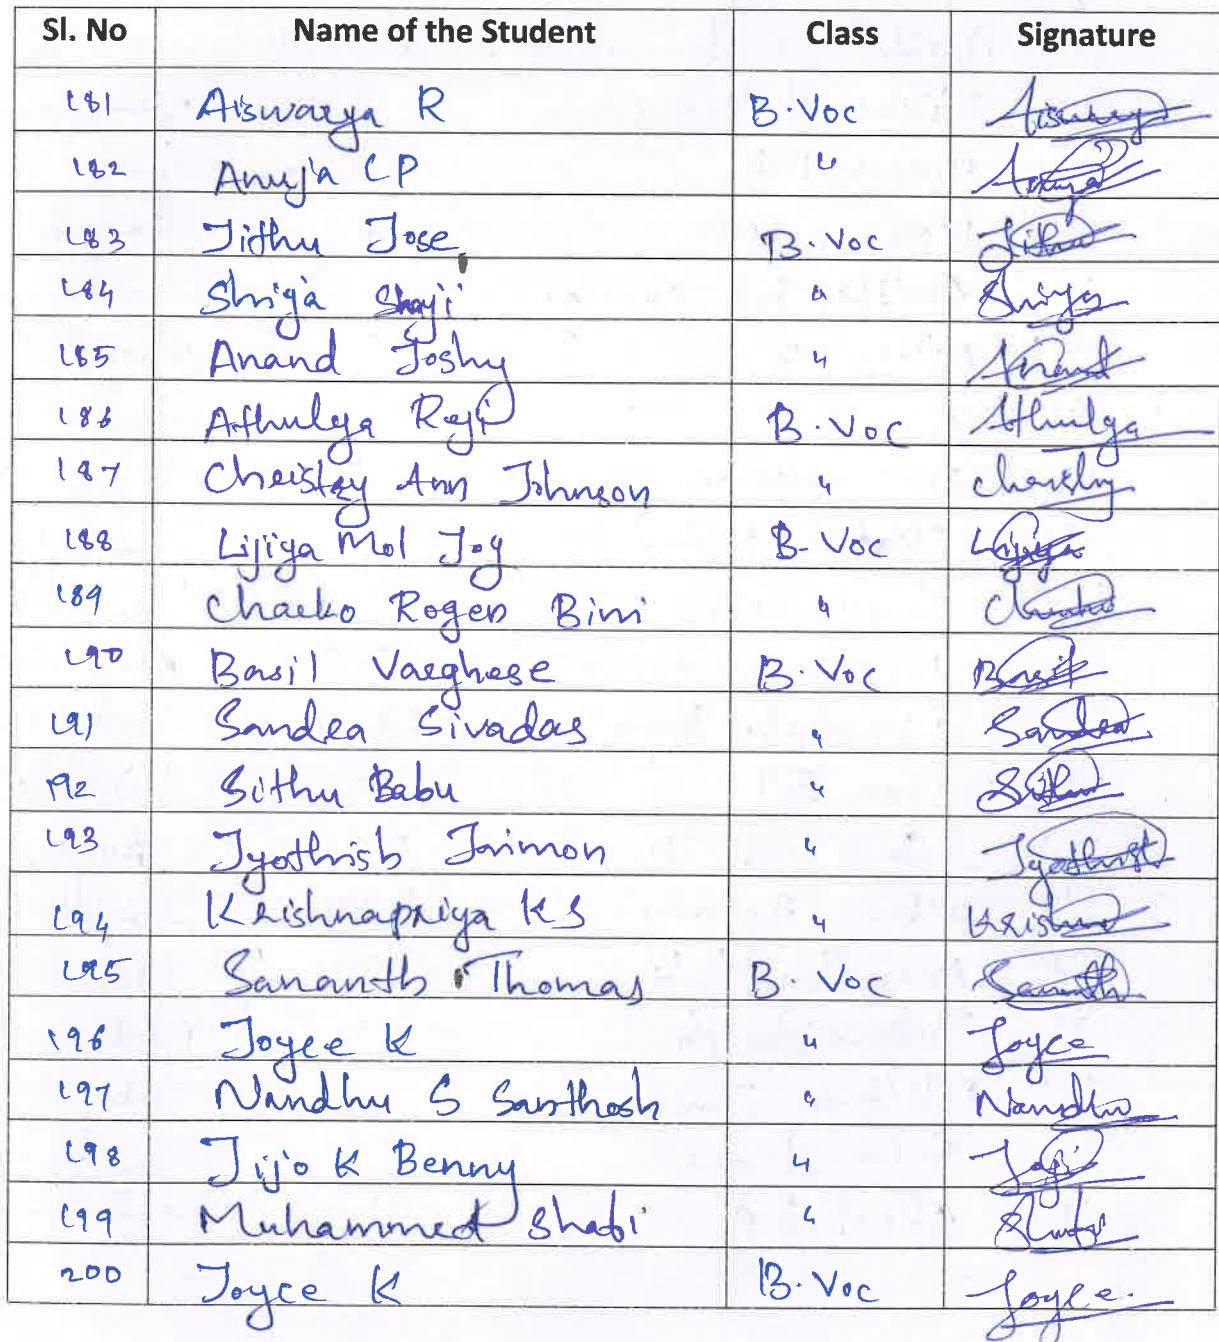 Sl. No Name of the Student Class Signature
181 Aiswarya R B.Voc Aiswarya
182 Anuja CP " Anuja
183 Jithu Jose B.Voc Jithu
184 Shiga Shaji " Shiga
185 Anand Joshy " Anand
186 Athulya Reji B.Voc Athulya
187 Christry Ann Johnson "
188 Lijiya Mol Joy B-Voc Lijiya
189 Chacko Rogen Bini " Chacko
190 Basil Varghese B.Voc Basil
191 Sandra Sivadas " Sandra
192 Sithu Babu " Sithu
193 Jyothish Jaimon "
194 Krishnapriya KS " Krishna
195 Sananth Thomas B.Voc Sananth
196 Joyce K " Joyce
197 Nandhu S Santhosh " Nandhu
198 Jijo K Benny "
199 Muhammed Shafi "
200 Joyce K B.Voc Joyce.